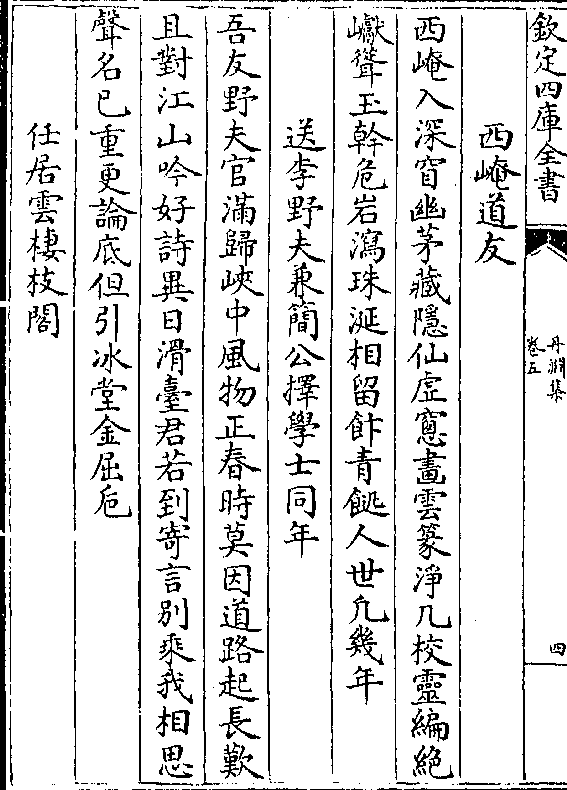 欽定四庫全書
丹淵集
卷五
四
西崦道友
西崦入深窅幽茅藏隱仙虛窻畫雲篆淨几校靈編絶
巘聳玉幹危岩瀉珠涎相留飰青䬳人世凡幾年
送李野夫兼簡公擇學士同年
吾友野夫官滿歸峽中風物正春時莫因道路起長歎
且對江山吟好詩異日滑臺君若到寄言別乘我相思
聲名已重更論底但引冰堂金屈卮
任居雲棲枝閣